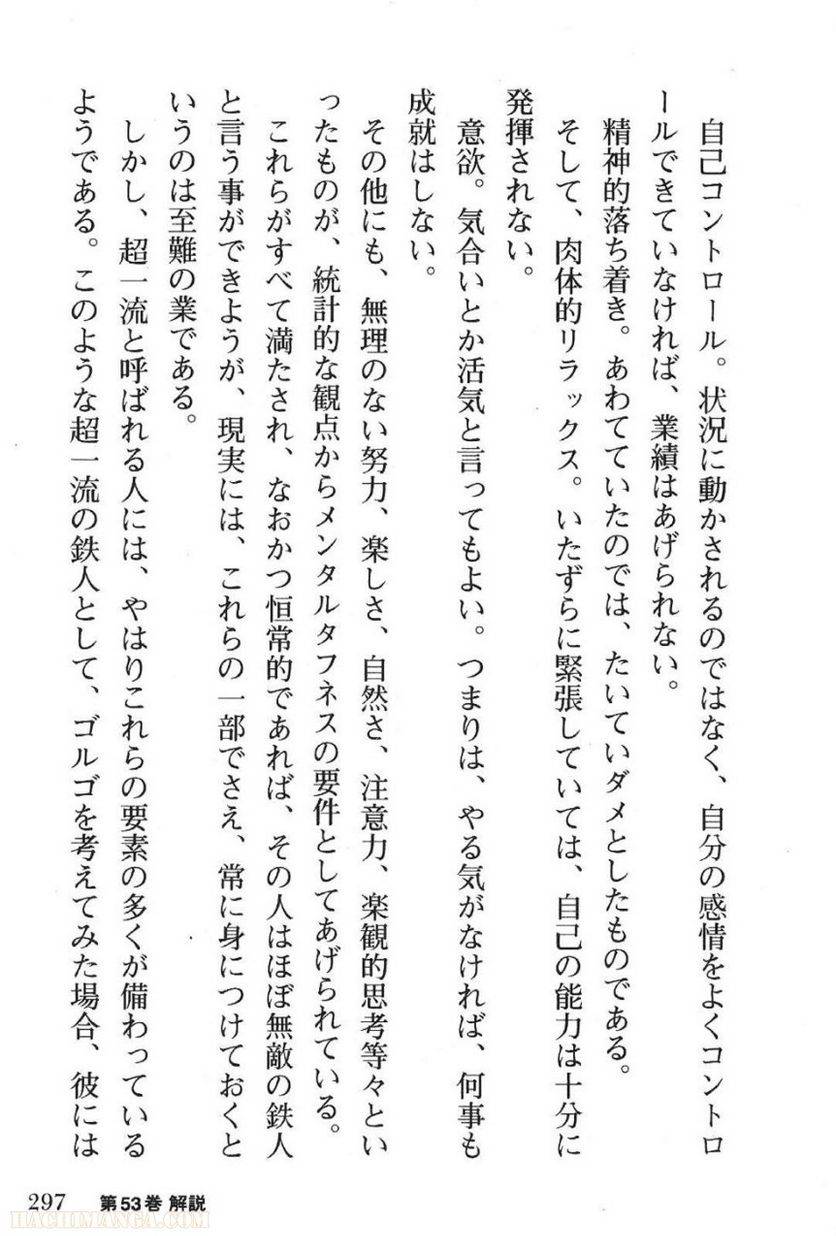 自己コントロール。状況に動かされるのではなく、自分の感情をよくコントロ
ールできていなければ、業績はあげられない。
精神的落ち着き。あわてていたのでは、たいていダメとしたものである。
そして、肉体的リラックス。いたずらに緊張していては、自己の能力は十分に
発揮されない。
意欲。気合いとか活気と言ってもよい。つまりは、やる気がなければ、何事も
成就はしない。
その他にも、無理のない努力、楽しさ、自然さ、注意力、楽観的思考等々とい
ったものが、統計的な観点からメンタルタフネスの要件としてあげられている。
これらがすべて満たされ、なおかつ恒常的であれば、その人はほぼ無敵の鉄人
と言う事ができようが、現実には、これらの一部でさえ、常に身につけておくと
いうのは至難の業である。
しかし、超一流と呼ばれる人には、やはりこれらの要素の多くが備わっている
ようである。このような超一流の鉄人として、ゴルゴを考えてみた場合、彼には
297 第53巻 解説
HACHIMANGA.COM